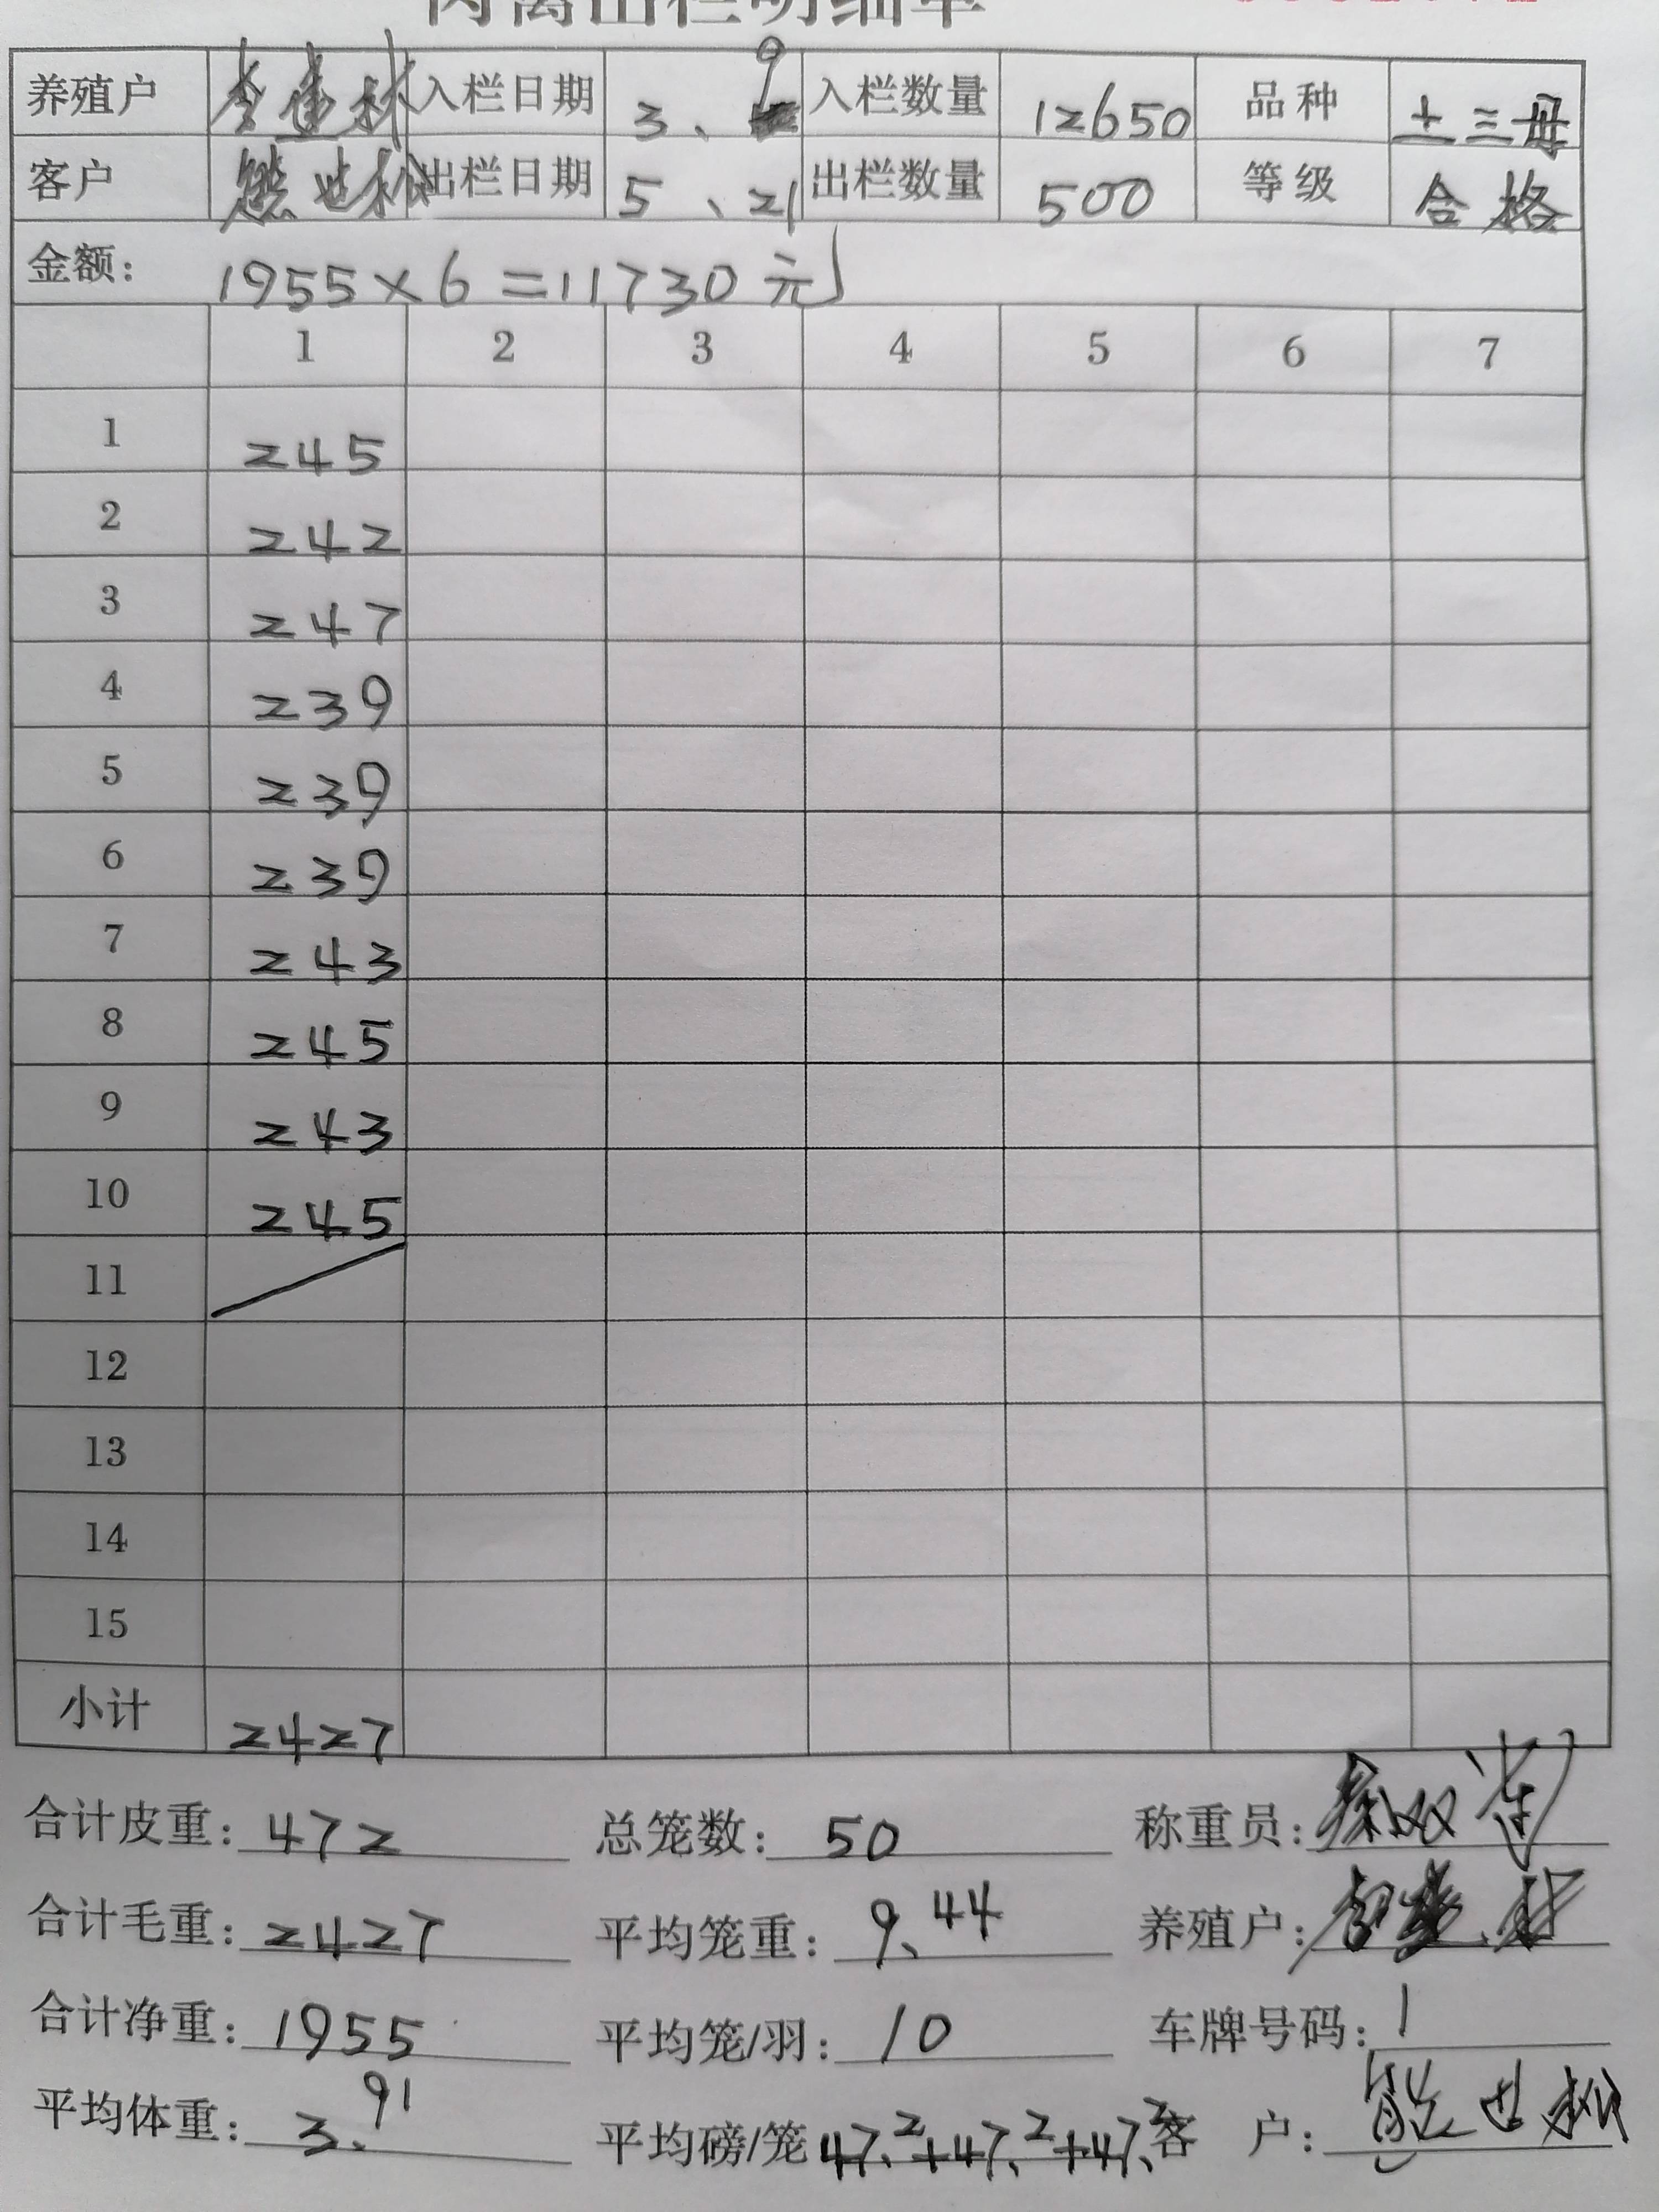 肉禽出栏明细单
养殖户 李建林 入栏日期 3、9 入栏数量 12650 品种 土三母
客户 熊世松 出栏日期 5、21 出栏数量 500 等级 合格
金额: 1955×6=11730元
1 2 3 4 5 6 7
1 245
2 242
3 247
4 239
5 239
6 239
7 243
8 245
9 243
10 245
11
12
13
14
15
小计 2427
合计皮重: 472 总笼数: 50 称重员:
合计毛重: 2427 平均笼重: 9.44 养殖户:
合计净重: 1955 平均笼/羽: 10 车牌号码: 1
平均体重: 3.91 平均磅/笼 47.2+47.2+47.2 客 户: 熊世松